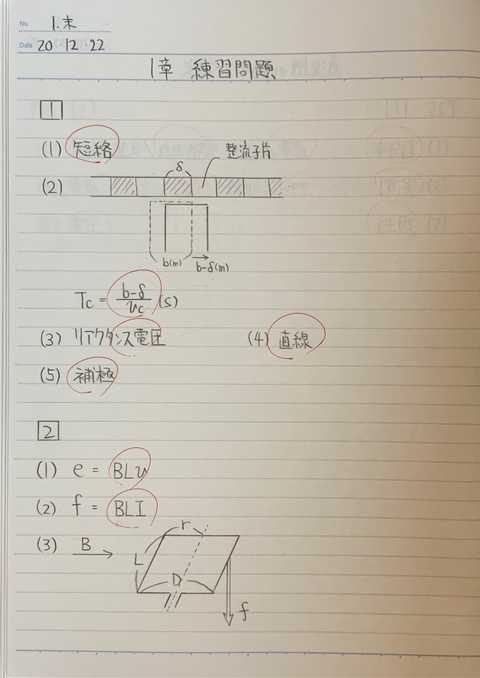 No. 1.末
Date 20・12・22
1章 練習問題
1
(1) 短絡
δ 整流子片
(2)
b(m) b-δ(m)
Tc = b-δ/vc (s)
(3) リアクタンス電圧 (4) 直線
(5) 補極
2
(1) e = BLv
(2) f = BLI
(3) B r
L D
f